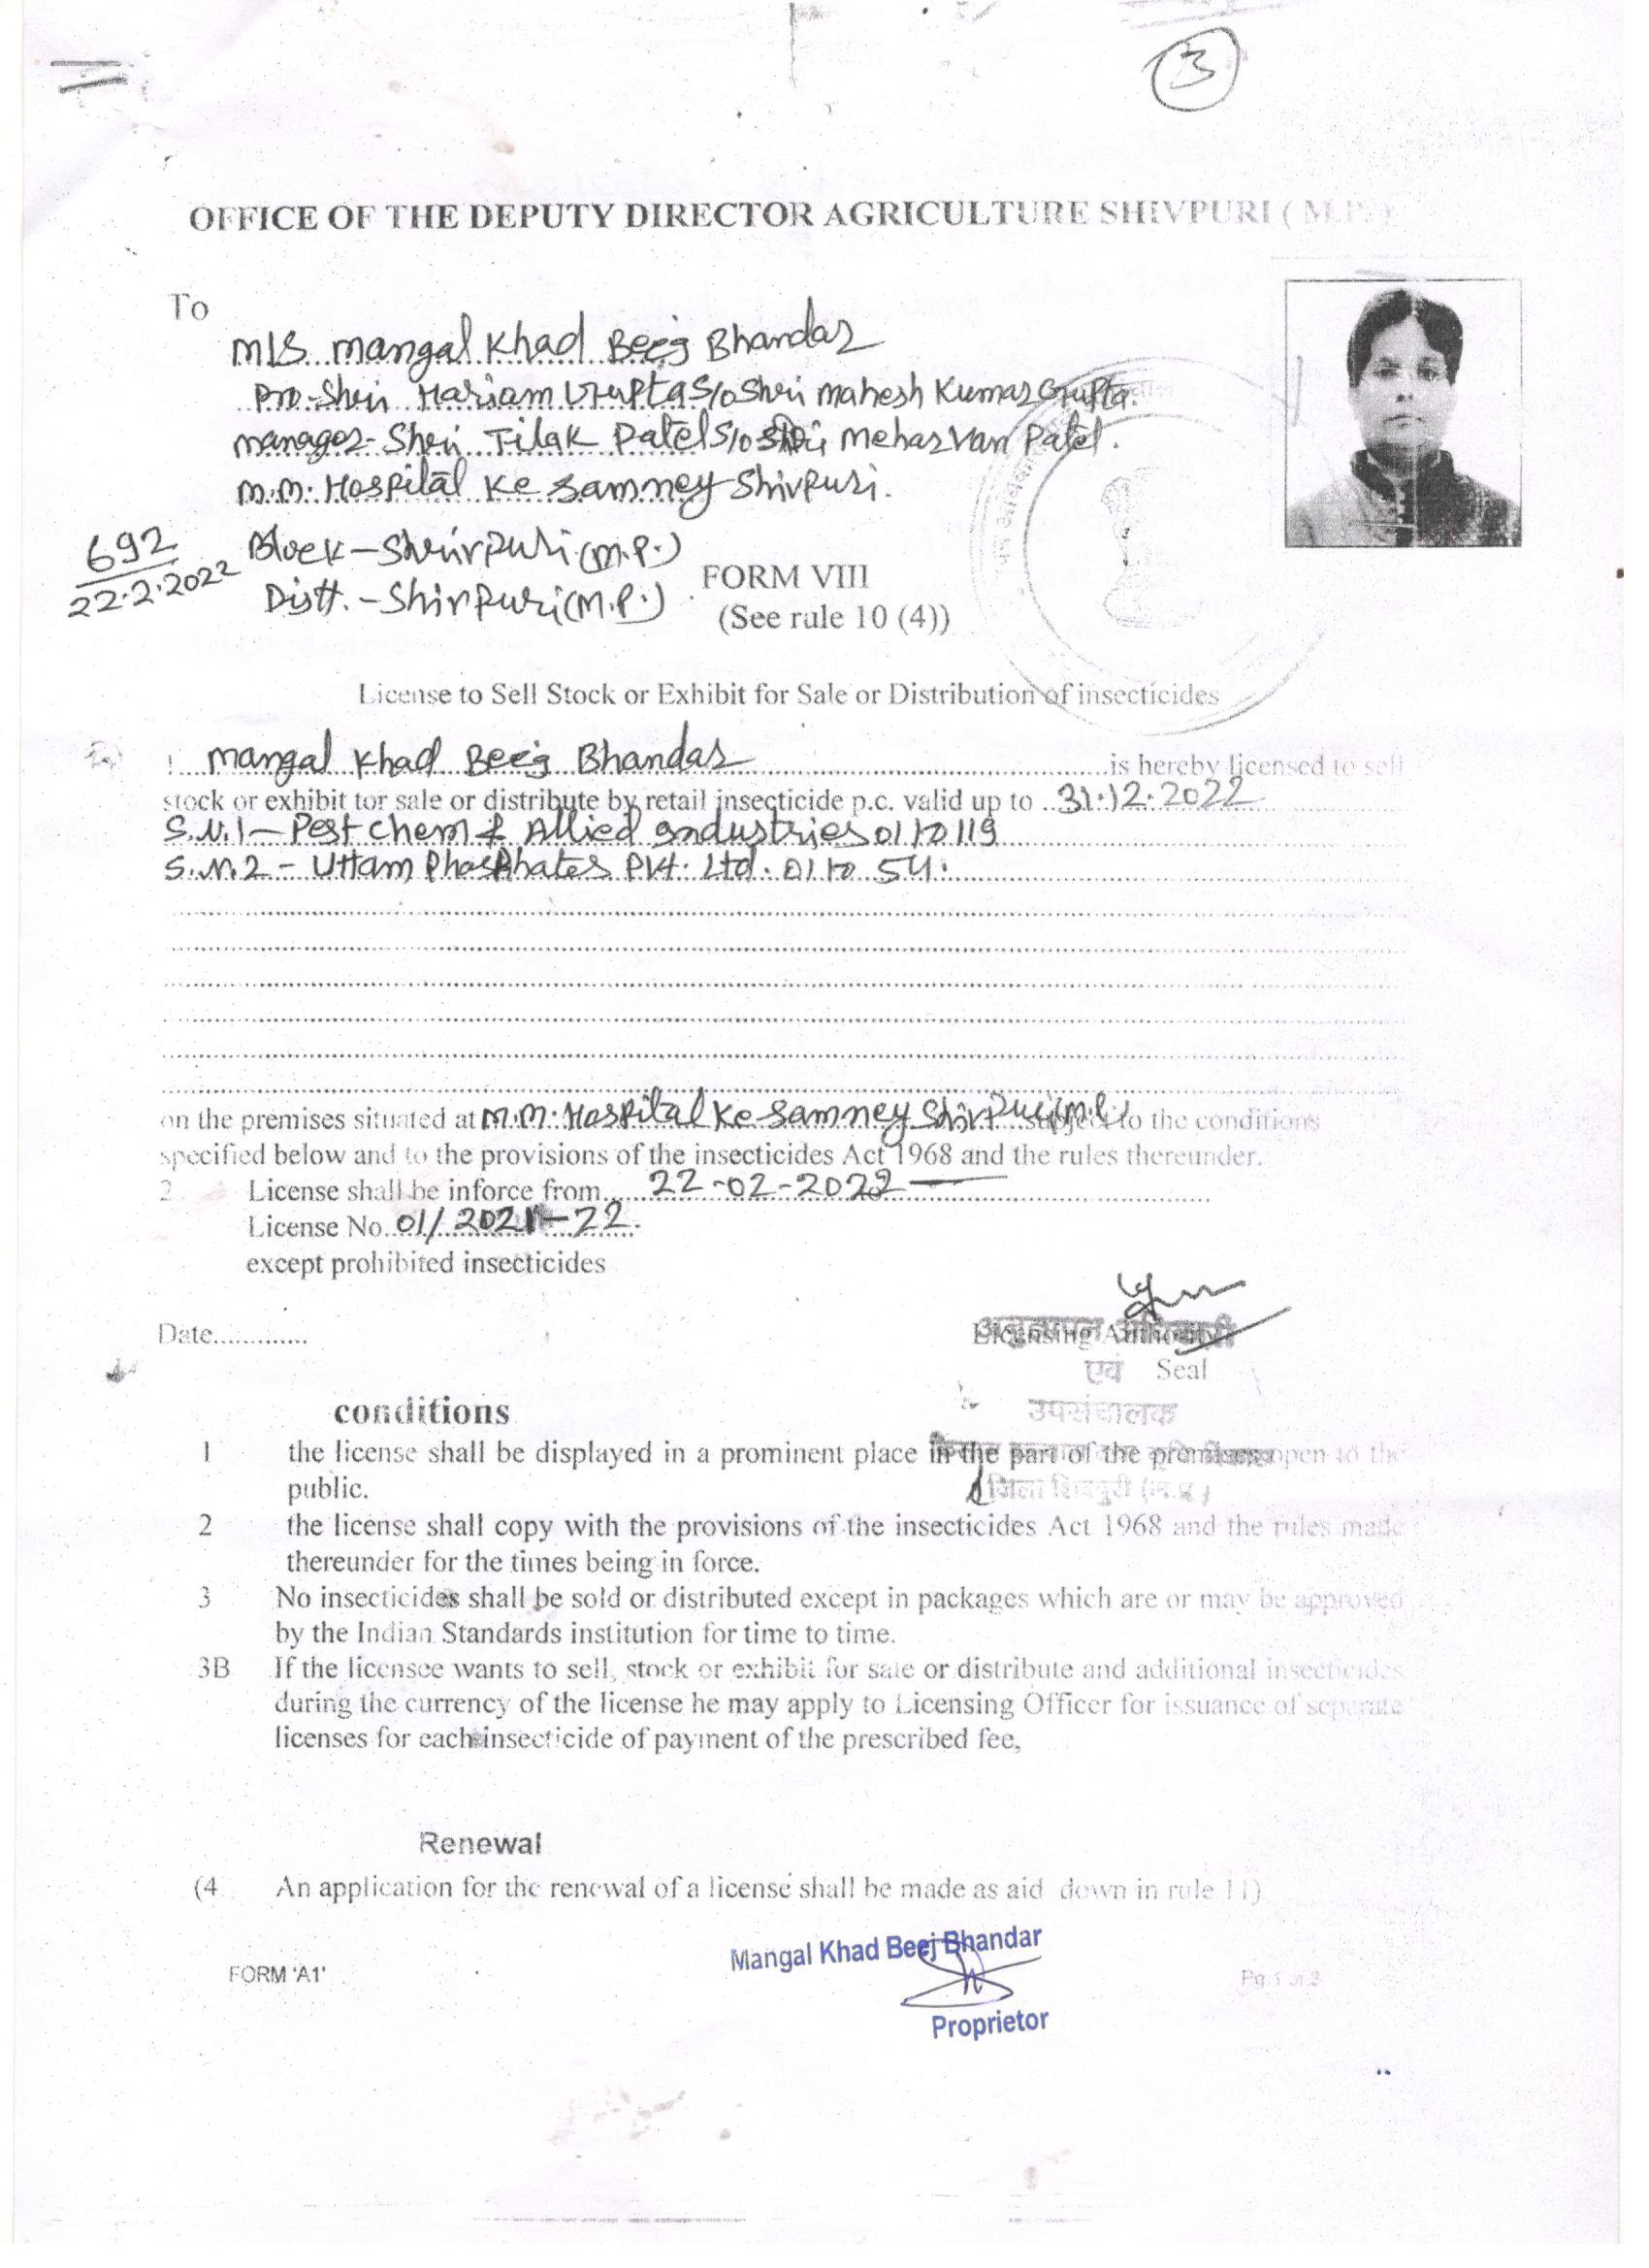 3
OFFICE OF THE DEPUTY DIRECTOR AGRICULTURE SHIVPURI ( M.P.)
To
M/S. Mangal Khad Beej Bhandar
Pro-Shri Hariam Gupta S/o Shri Mahesh Kumar Gupta.
Manager- Shri Tilak Patel S/o Shri Meharvan Patel.
M.M. Hospital Ke Samney Shivpuri.
692
22.2.2022
Block - Shivpuri (M.P.)
Distt. - Shivpuri (M.P.)
FORM VIII
(See rule 10 (4))
License to Sell Stock or Exhibit for Sale or Distribution of insecticides
1 Mangal Khad Beej Bhandar is hereby licensed to sell
stock or exhibit tor sale or distribute by retail insecticide p.c. valid up to 31.12.2022
S.N.1 - Pest Chem & Allied Industries 01 to 119
S.N.2 - Uttam Phosphates Pvt. Ltd. 01 to 54.
on the premises situated at M.M. Hospital Ke Samney Shivpuri (M.P.) subject to the conditions
specified below and to the provisions of the insecticides Act 1968 and the rules thereunder.
2 License shall be inforce from 22-02-2022
License No. 01/2021-22.
except prohibited insecticides
Date.............
अनुज्ञापन अधिकारी
Licensing Authority
एवं Seal
उपसंचालक
जिला शिवपुरी (म.प्र.)
conditions
1 the license shall be displayed in a prominent place in the part of the premises open to the
public.
2 the license shall copy with the provisions of the insecticides Act 1968 and the rules made
thereunder for the times being in force.
3 No insecticides shall be sold or distributed except in packages which are or may be approved
by the Indian Standards institution for time to time.
3B If the licensee wants to sell, stock or exhibit for sale or distribute and additional insecticides
during the currency of the license he may apply to Licensing Officer for issuance of seperate
licenses for each insecticide of payment of the prescribed fee,
Renewal
(4 An application for the renewal of a license shall be made as aid down in rule 11)
Mangal Khad Beej Bhandar
Proprietor
FORM 'A1'
Pg.1 of 2